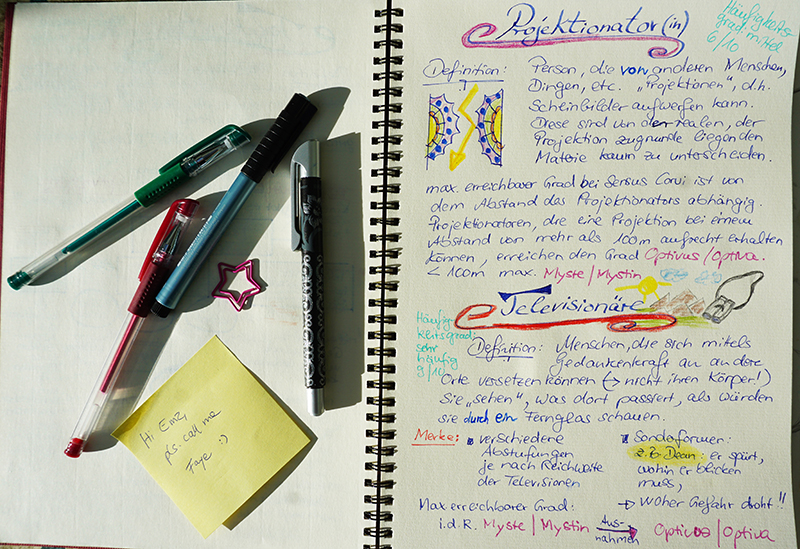 Hi Emz,
pls. call me
Faye :)
Projektionator(in)
Häufigkeits-
grad mittel
6/10
Definition: Person, die von anderen Menschen,
Dingen, etc. „Projektionen", d.h.
Scheinbilder aufwerfen kann.
Diese sind von der realen, der
Projektion zugrunde liegenden
Materie kaum zu unterscheiden.
max. erreichbarer Grad bei Sensus Corvi ist von
dem Abstand des Projektionators abhängig.
Projektionatoren, die eine Projektion bei einem
Abstand von mehr als 100m aufrecht erhalten
können, erreichen den Grad Optivus/Optiva.
< 100m max. Myste/Mystin
Televisionäre
Häufig-
keitsgrad:
sehr
häufig
9/10
Definition: Menschen, die sich mittels
Gedankenkraft an andere
Orte versetzen können (→ nicht ihren Körper!)
Sie „sehen", was dort passiert, als würden
sie durch ein Fernglas schauen.
Merke: verschiedene
Abstufungen
je nach Reichweite
der Televisionen
Sonderformen:
z.B. Dean: er spürt,
wohin er blicken
muss,
→ woher Gefahr droht!!
Max erreichbarer Grad:
i.d.R. Myste/Mystin Aus-
nahmen → Optivus/Optiva